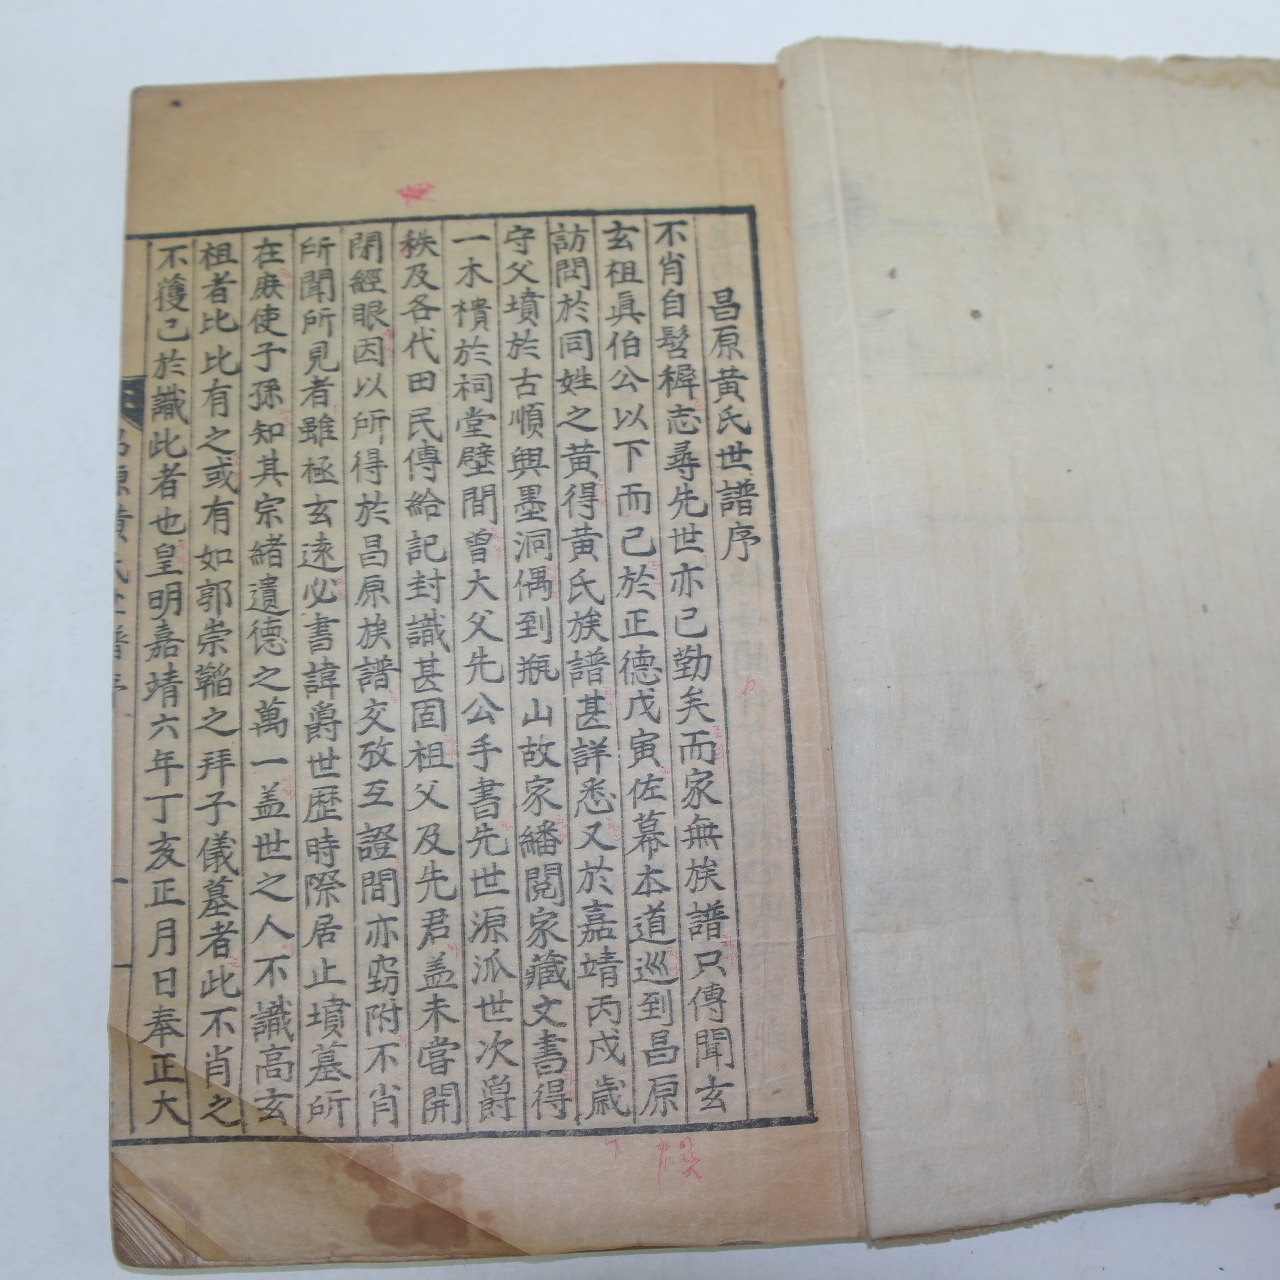 昌原黄氏世譜序
不肖自髫稺志尋先世亦已勤矣而家無族譜只傳聞玄
玄祖眞伯公以下而已於正德戊寅佐幕本道巡到昌原
訪問於同姓之黄得黄氏族譜甚詳悉又於嘉靖丙戌歲
守父墳於古順興墨洞偶到瓶山故家繙閱家藏文書得
一木樻於祠堂壁間曾大父先公手書先世源派世次爵
秩及各代田民傳給記封識甚固祖父及先君盖未嘗開
閉經眼因以所得於昌原族譜交攷互證間亦竊附不肖
所聞所見者雖極玄遠必書諱爵世歴時際居止墳墓所
在庻使子孫知其宗緒遺德之萬一盖世之人不識高玄
祖者比比有之或有如郭崇韜之拜子儀墓者此不肖之
不獲已於識此者也皇明嘉靖六年丁亥正月日奉正大
昌原黄氏世譜序 一